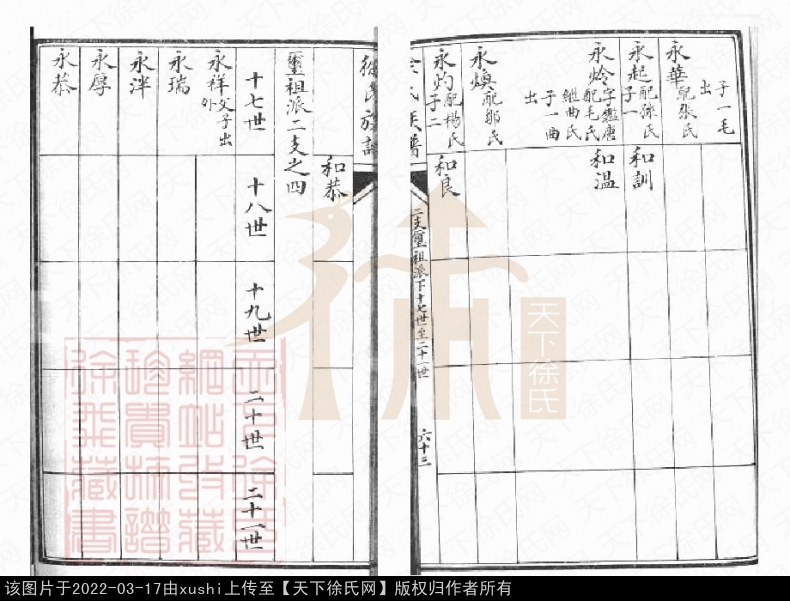 永華配張氏
子一毛
出
永起配涂氏
子一
和訓
永炩字鑑唐
配毛氏
繼曲氏
子一曲
出
和温
永煥配鄒氏
永灼配楊氏
子二
和良
徐氏族譜
二支璽祖派下十七世至二十一世
六十三
和恭
璽祖派二支之四
十七世
十八世
十九世
二十世
二十一世
永祥父子出
外
永瑞
永泮
永厚
永恭
天下徐氏
天下徐氏網站收藏珍貴族譜徐飛藏書
该图片于2022-03-17由xushi上传至【天下徐氏网】版权归作者所有